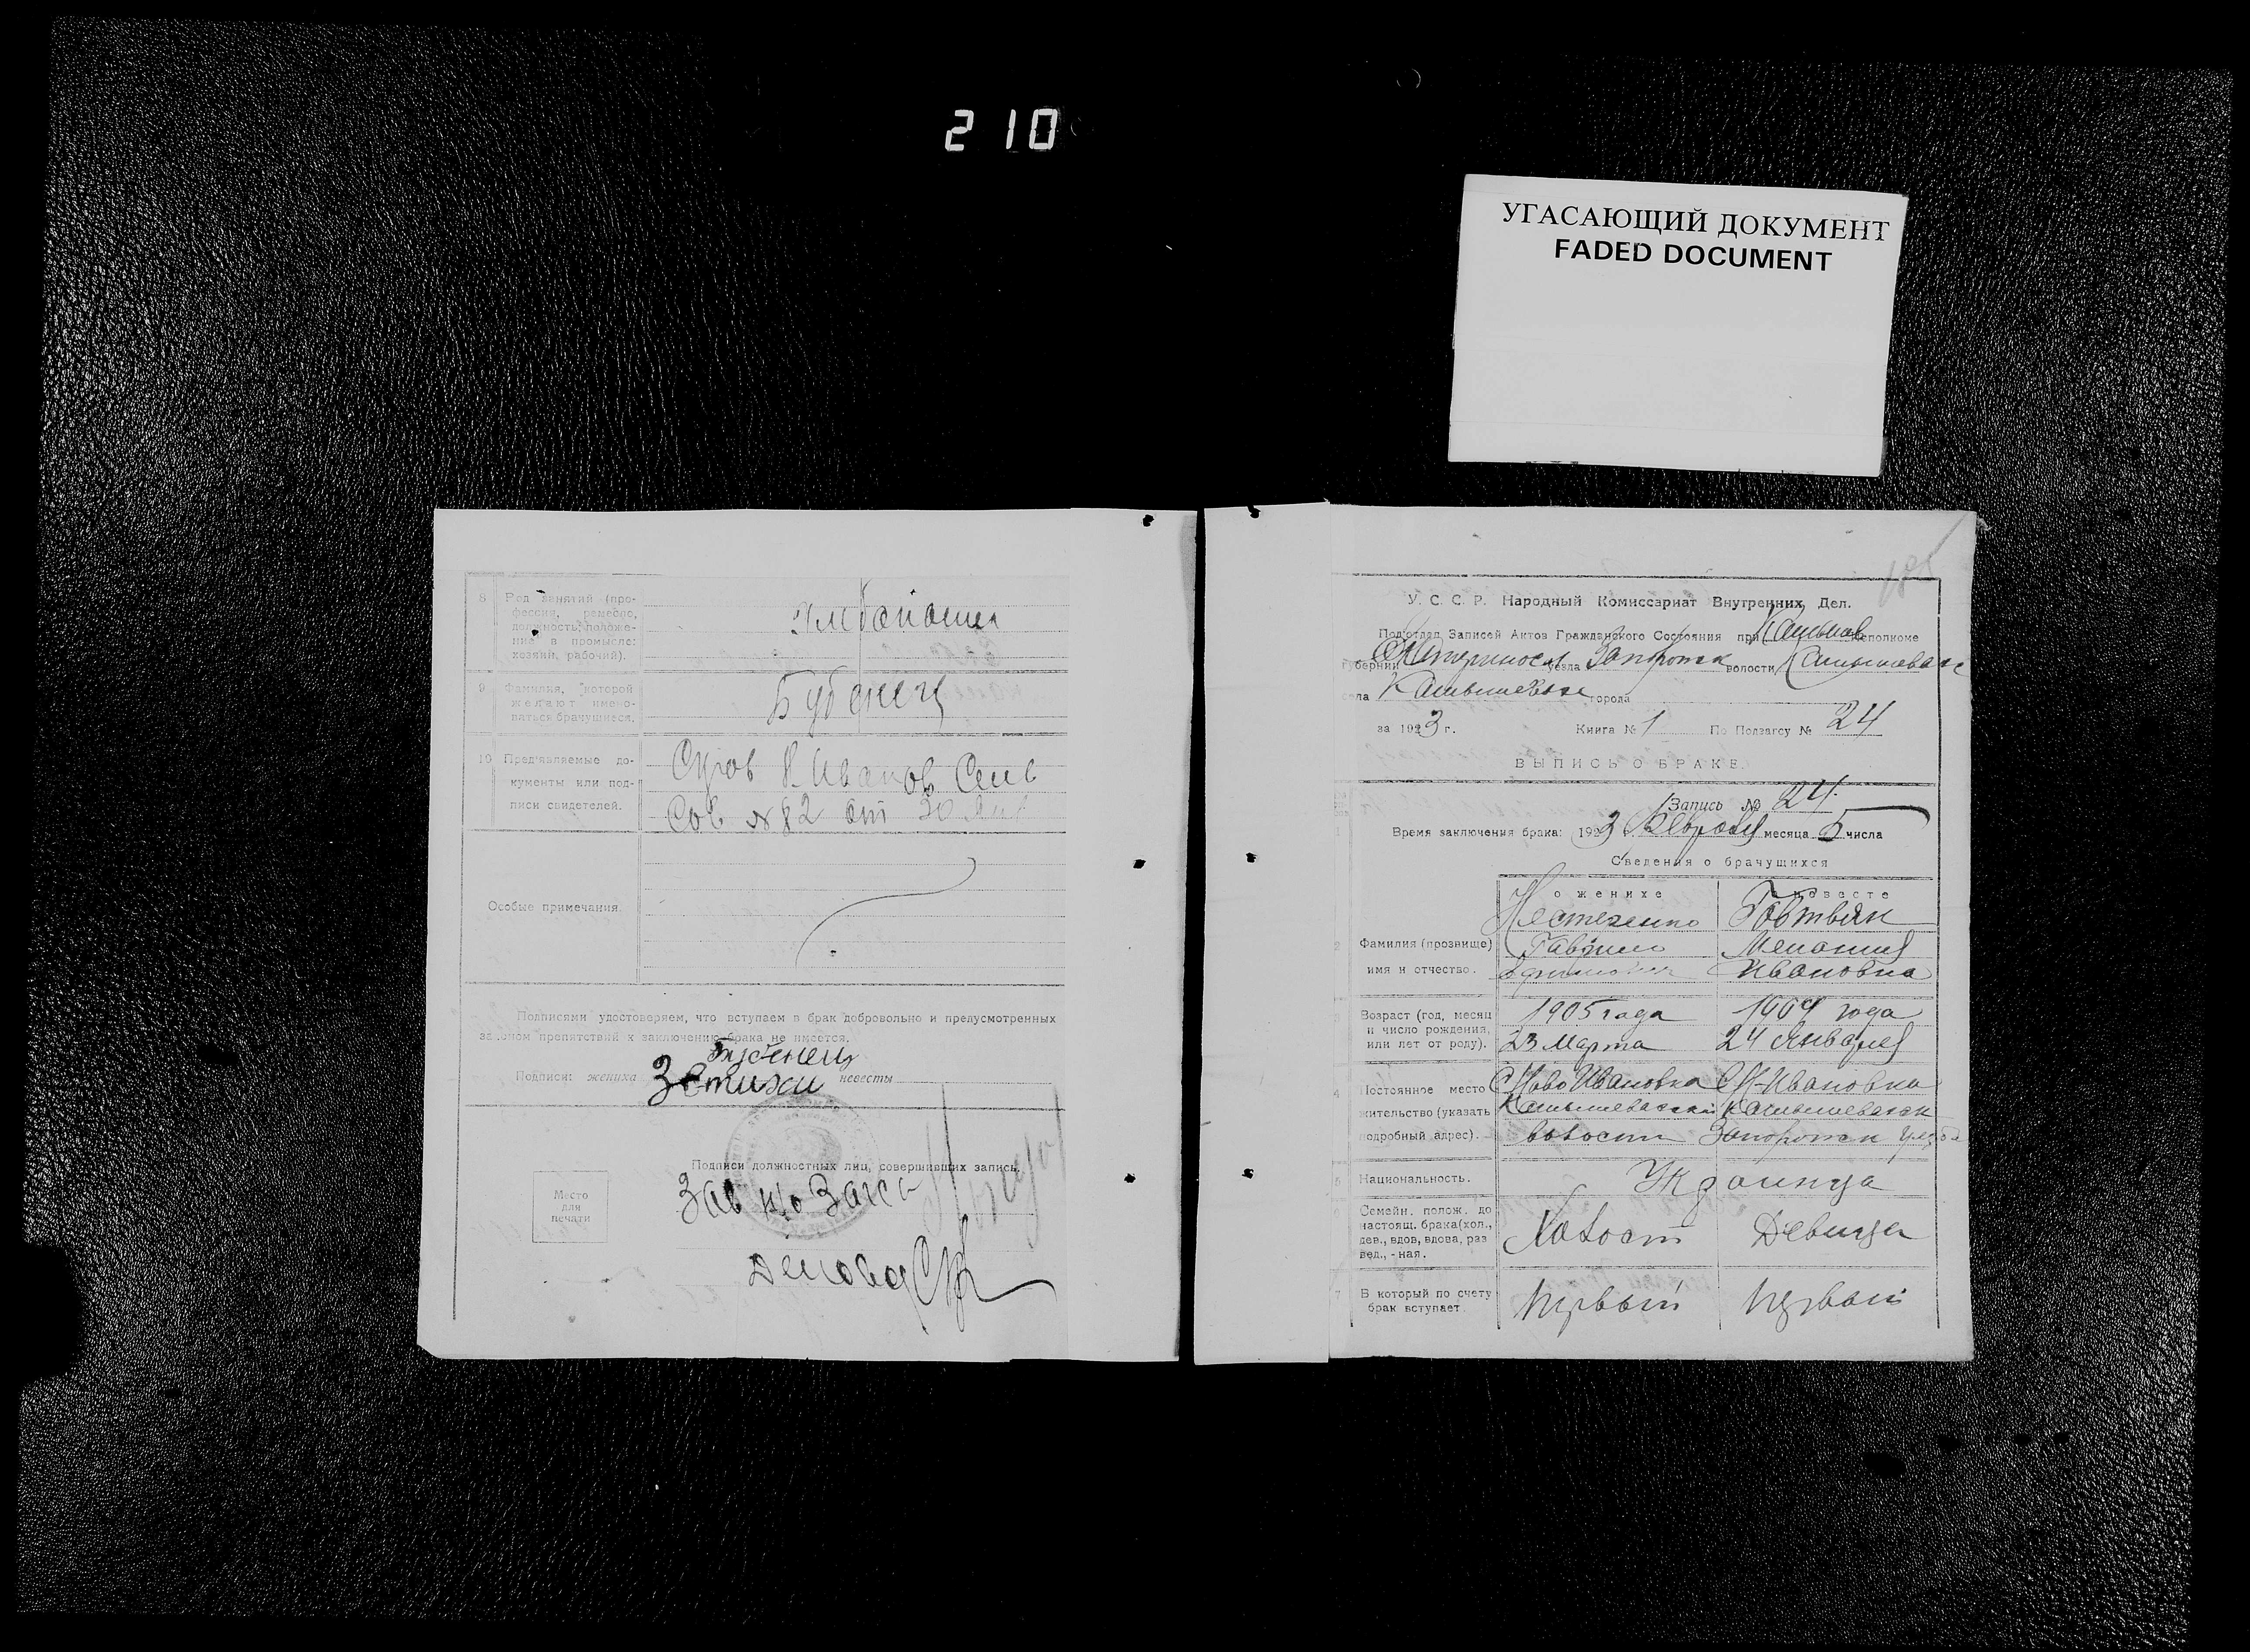 210
УГАСАЮЩИЙ ДОКУМЕНТ
FADED DOCUMENT
8 Род занятий (про-
фессия, ремесло,
должность, положе-
ние в промысле:
хозяин, рабочий).
9 Фамилия, которой
желают имено-
ваться брачущиеся.
Бубенец
10 Пред'являемые до-
кументы или под-
писи свидетелей.
Н. Иванов Сель
Сов №82 от 30 Янв
Особые примечания.
Подписями удостоверяем, что вступаем в брак добровольно и предусмотренных
законом препятствий к заключению брака не имеется.
Бубенец
Подписи: жениха невесты
Подписи должностных лиц, совершивших запись.
Зав п/о Загса
Место
для
печати
У. С. С. Р. Народный Комиссариат Внутренних Дел.
Под'отдел Записей Актов Гражданского Состояния при Исполкоме
губернии уезда Запорожск волости Камышевахс
села Камышеваха города
за 1923 г. Книга № 1 По Подзагсу № 24
ВЫПИСЬ О БРАКЕ.
Запись № 24
Время заключения брака: 1923 г. Февраля месяца 5 числа
Сведения о брачущихся
о женихе о невесте
Фамилия (прозвище)
имя и отчество.
Гаврило Мелания
Ивановна
Возраст (год, месяц
и число рождения,
или лет от роду).
1905 года 1904 года
23 Марта 24 Января
Постоянное место
жительство (указать
подробный адрес).
С Ново Ивановка С Н-Ивановка
Камышевахской Камышевахск
волости Запорожск уезда
5 Национальность. Украинца
6 Семейн. полож. до
настоящ. брака (хол.,
дев., вдов, вдова, раз
вед., -ная.
Холост Девица
7 В который по счету
брак вступает.
первый первый